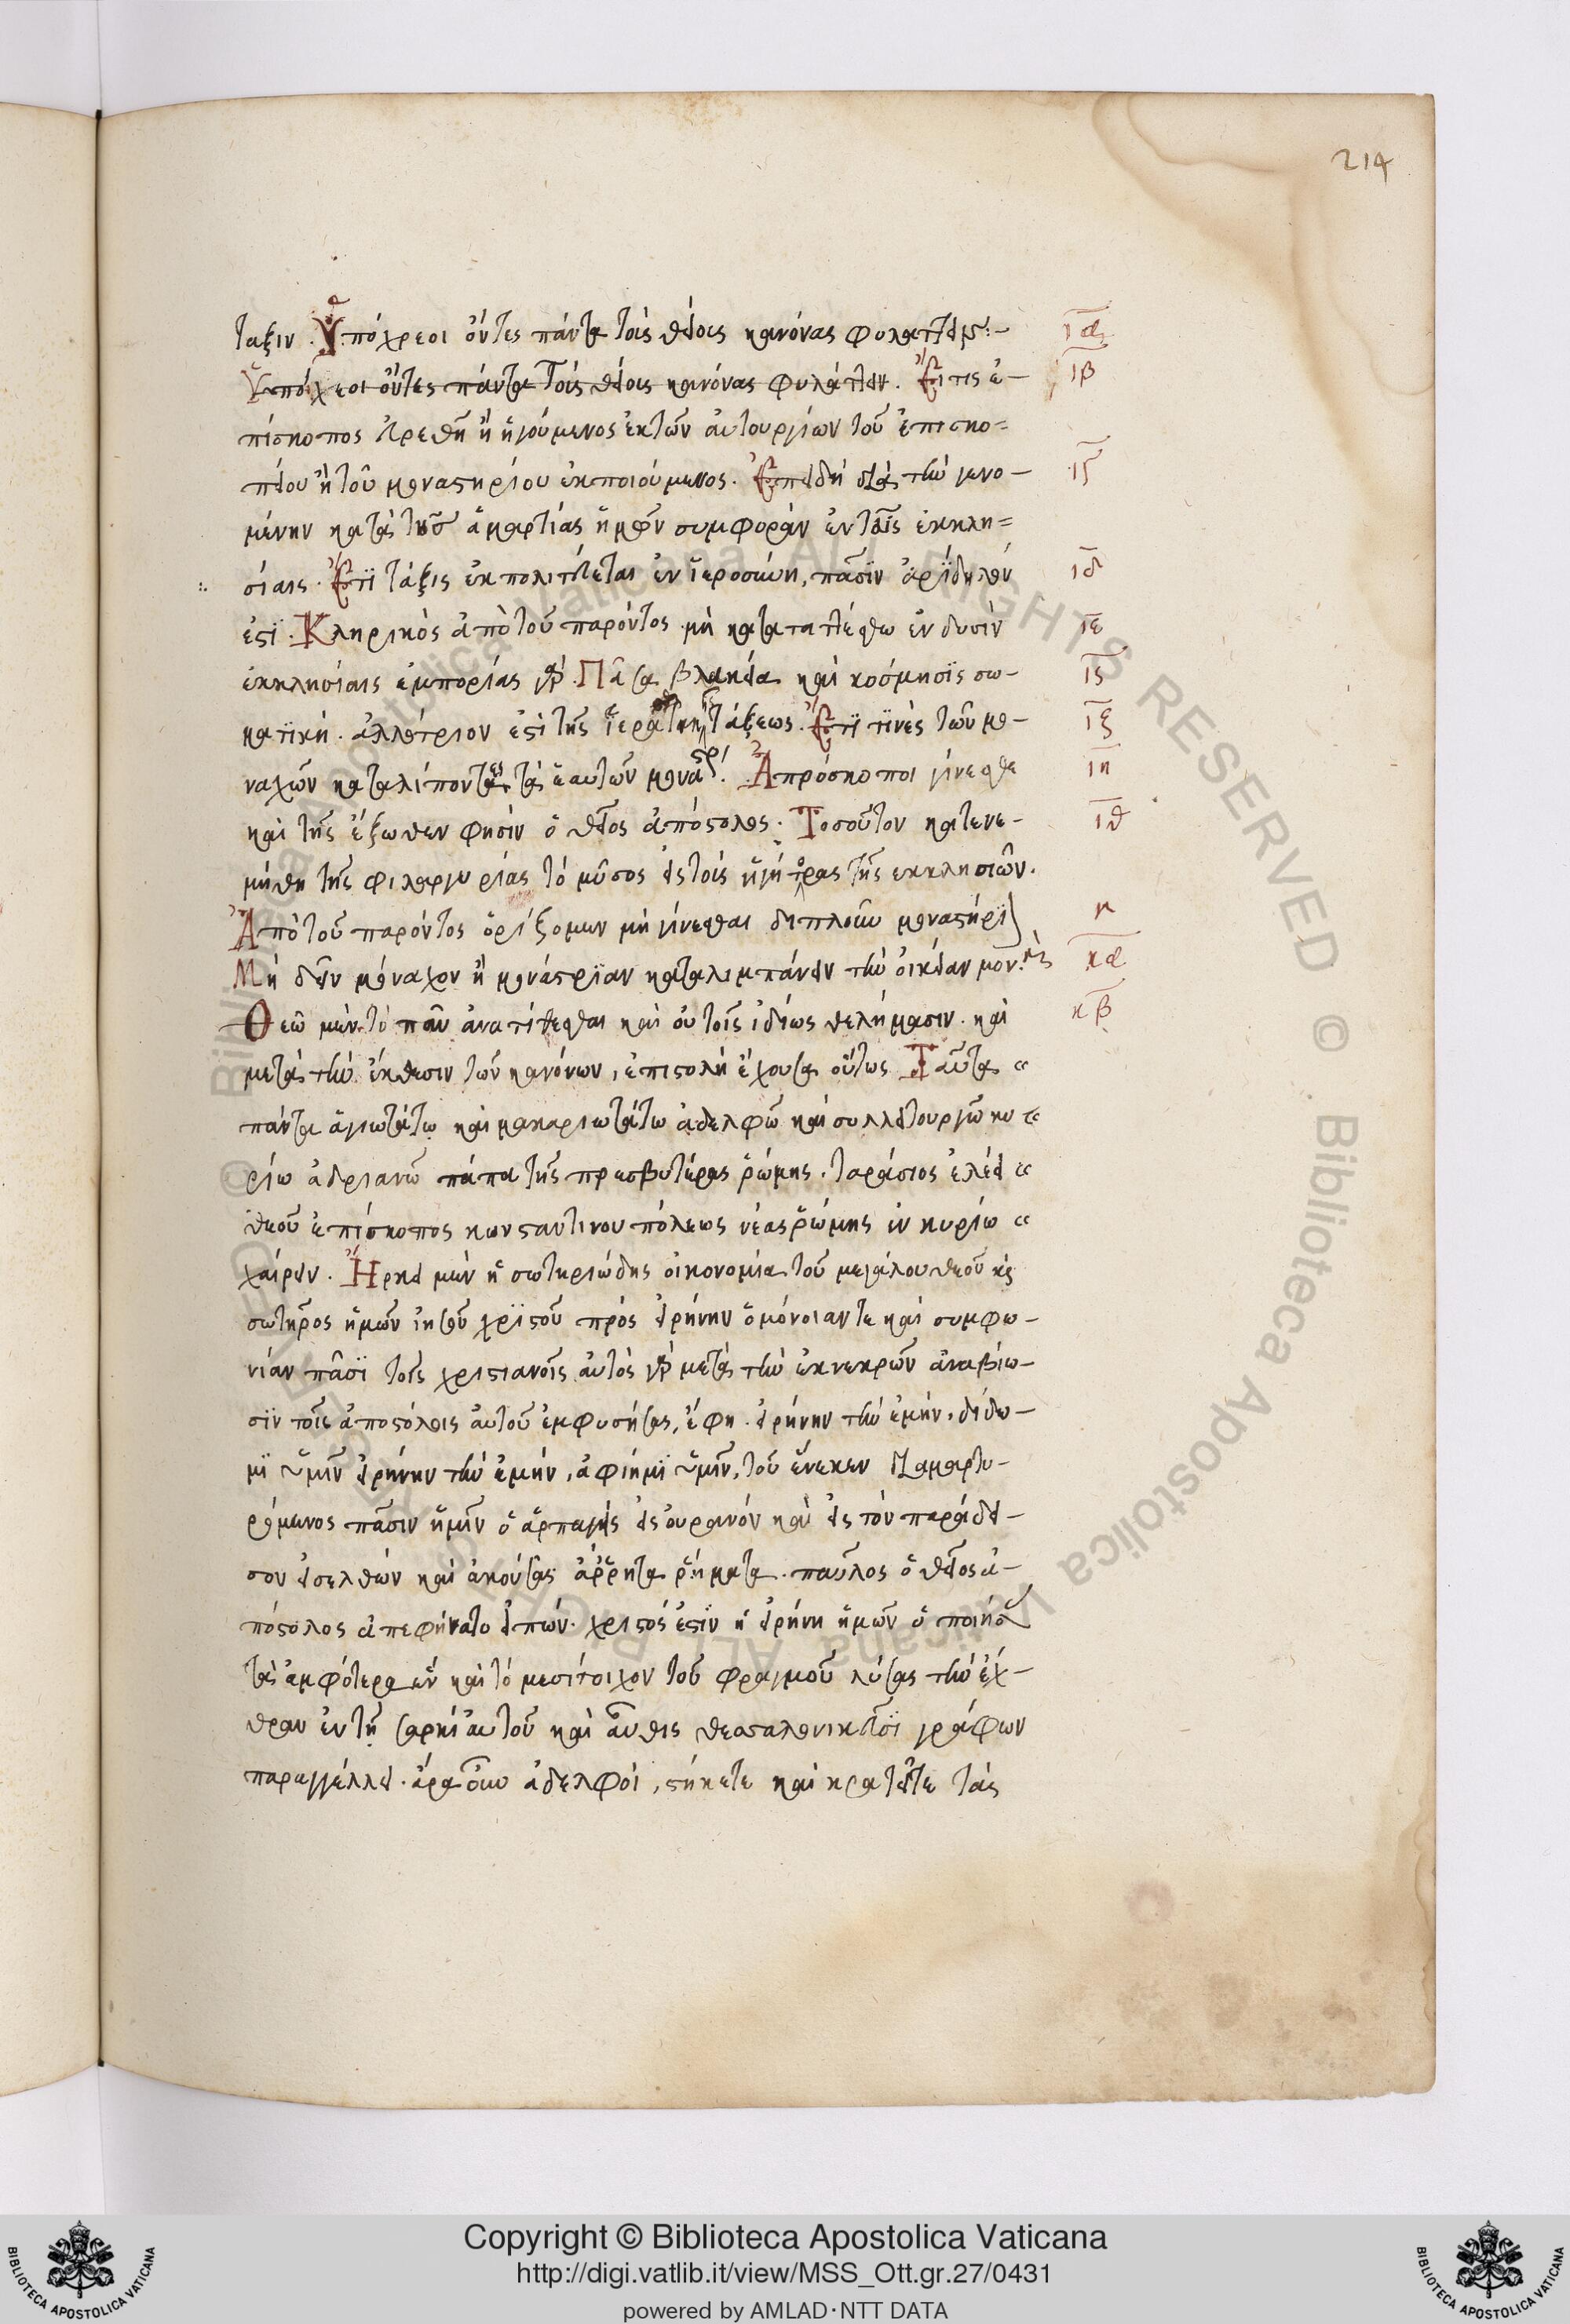 214
ταξιν. Ὑπόχρεοι ὄντες πάντα τοὺς θείους κανόνας φυλάττειν:– ια
Ὑπόχρεοι ὄντες πάντα τοὺς θείους κανόνας φυλάττειν. Εἴ τις ἐ– ιβ
πίσκοπος εὑρεθῆ ἢ ἡγούμενος ἐκ τῶν αὐτουργίων τοῦ ἐπισκο=
πείου ἢ τοῦ μοναστηρίου ἐκποιούμενος. Ἐπειδὴ διὰ τὴν γενο– ιγ
μένην κατὰ τὰς ἁμαρτίας ἡμῶν συμφορὰν ἐν ταῖς ἐκκλη=
σίαις. Ὅτι τάξις ἐκπολιτεύεται ἐν ἱεροσύνη, πᾶσιν ἀρίδηλόν ιδ
ἐστι. Κληρικὸς ἀπὸ τοῦ παρόντος μὴ κατατατέσθω ἐν δυσὶν ιε
ἐκκλησίαις ἐμπορίας γὰρ. Πᾶσα βλακεία καὶ κόσμησις σω– ις
ματικὴ. ἀλλότριον ἐστὶ τῆς ἱερατικῆς τάξεως. Ἔτι τινὲς τῶν μο– ιζ
ναχῶν καταλίποντες τὰ ἑαυτῶν μοναστήρ. Ἀπρόσκοποι γίνεσθε ιη
καὶ τῆς ἔξωθεν φησὶν ὁ θεῖος ἀπόστολος. Τοσοῦτον κατενε– ιθ
μήθη τῆς φιλαργυρίας τὸ μῦσος εἰς τοὺς ἡγήτορας τῆς ἐκκλησιῶν.
Ἀπὸ τοῦ παρόντος ὁρίζομεν μὴ γίνεσθαι διπλοῦν μοναστήρι κ
Μὴ δεῖν μόναχον ἢ μονάστριαν καταλιμπάνειν τὴν οἰκείαν μον. κα
Θεῶ μὲν τὸ πᾶν ἀνατίθεσθαι καὶ οὐ τοῖς ἰδίως θελήμασιν. καὶ κβ
μετὰ τὴν ἔκθεσιν τῶν κανόνων, ἐπιστολὴ ἔχουσα οὕτως Ταῦτα
πάντα ἁγιωτάτω καὶ μακαριωτάτω ἀδελφῶ καὶ συλλειτουργῶ κυ
ρίω ἀδριανῶ πάπα τῆς πρεσβυτέρας ῥώμης. ταράσιος ἐλέει
θεοῦ ἐπίσκοπος κωνσταντινουπόλεως νέας ῥώμης ἐν κυρίω
χαίρειν. Ἤρκει μὲν ἡ σωτηριώδης οἰκονομία τοῦ μεγάλου θεοῦ κς
σωτῆρος ἡμῶν ἰησοῦ χριστοῦ πρὸς εἰρήνην ὁμόνοιαν τε καὶ συμφω–
νίαν πᾶσι τοῖς χριστιανοῖς αὐτὸς γὰρ μετὰ τὴν ἐκ νεκρῶν ἀναβίω–
σιν τοῖς ἀποστόλοις αὐτοῦ ἐμφυσήσας, ἔφη. εἰρήνην τὴν ἐμὴν, δίδω–
μι ὑμῖν εἰρήνην τὴν ἐμὴν, ἀφίημι ὑμῖν, τοῦ ἕνεκεν διαμαρτυ–
ρόμενος πᾶσιν ἡμῖν ὁ ἁρπαγεὶς εἰς οὐρανόν καὶ εἰς τὸν παράδει–
σον εἰσελθὼν καὶ ἀκούσας ἄῤῥητα ῥήματα. παῦλος ὁ θεῖος ἀ–
πόστολος ἀπεφήνατο εἰπών. χριστός ἐστιν ἡ εἰρήνη ἡμῶν ὁ ποιήσας
τὰ ἀμφότερα ἓν καὶ τὸ μεσίτοιχον τοῦ φραγμοῦ λύσας τὴν ἔχ–
θραν ἐν τῆ σαρκὶ αὐτοῦ καὶ αὖθις θεσσαλονικεῦσι γράφων
παραγγέλλει. ἄρα οὖν ἀδελφοὶ, στήκετε καὶ κρατεῖτε τὰς
Copyright © Biblioteca Apostolica Vaticana
http://digi.vatlib.it/view/MSS_Ott.gr.27/0431
powered by AMLAD·NTT DATA